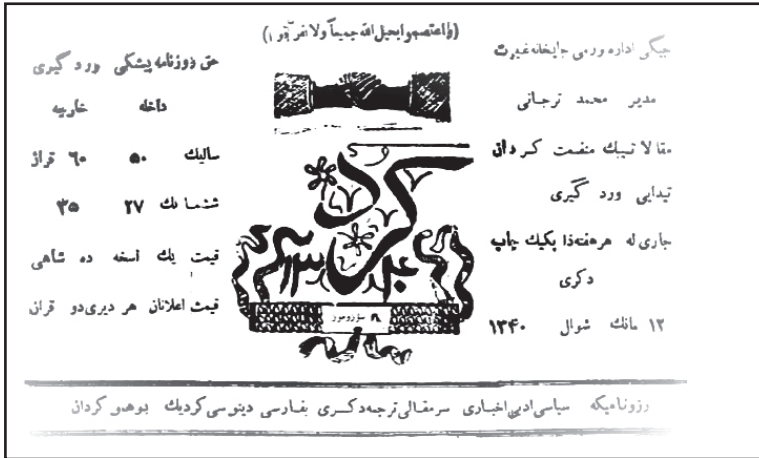 (واعتصموا بحبل الله جمیعاً ولا تفرقوا)
جیگی اداره ورمی چایخانه غیرت
مدیر محمد ترجانی
مقالا تیبك منفعت كردان
تیدابی ورد گیری
جاری له هر هفته‌دا یكیك چاپ
دكری
۱۲ مانك شوال ۱۳۴۰
كرد
۱۳۴۰
حق ذوزنامه پیشكی ورد گیری
داخله خارجه
سالیك ۵۰ ۶۰ قران
ششمانك ۲۷ ۳۵
قیمت یك نسخه ده شاهی
قیمت اعلانان هر دیری دو قران
رزونامیكه سیاسی ادبی اخباری سرمقالی ترجمه دكری بفارسی دینوسی كردیك بوهمو كردان